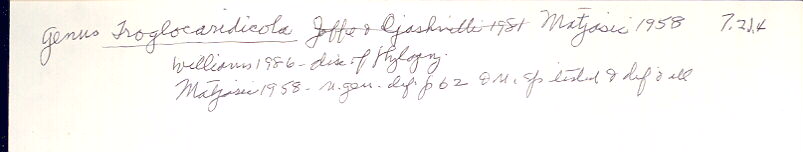 Genus Troglocaridicola Joffe & Djashvili 1981 Matjasic 1958 7.21.4
Williams 1986 - disc. of Phylogeny.
Matjasic 1958 - n. gen. def. p 62 & n. sps listed & def'd all